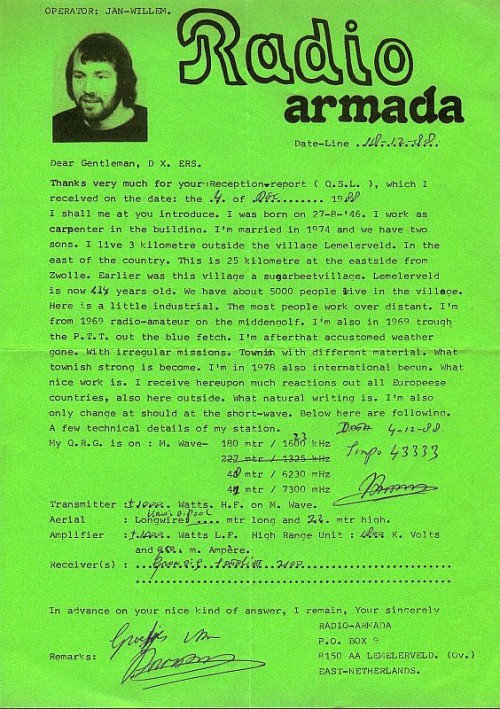 OPERATOR: JAN-WILLEM.
Radio
armada
Date-Line .18.-12.-88.
Dear Gentleman, D X. ERS.
Thanks very much for your Reception report ( Q.S.L. ), which I
received on the date: the .4. of Dec........ 1988
I shall me at you introduce. I was born on 27-8-'46. I work as
carpenter in the building. I'm married in 1974 and we have two
sons. I live 3 kilometre outside the village Lemelerveld. In the
east of the country. This is 25 kilometre at the eastside from
Zwolle. Earlier was this village a sugarbeetvillage. Lemelerveld
is now years old. We have about 5000 people live in the village.
Here is a little industrial. The most people work over distant. I'm
from 1969 radio-amateur on the middengolf. I'm also in 1969 trough
the P.T.T. out the blue fetch. I'm afterthat accustomed weather
gone. With irregular missions. Townish with different material. What
townish strong is become. I'm in 1978 also international becun. What
nice work is. I receive hereupon much reactions out all Europeese
countries, also here outside. What natural writing is. I'm also
only change at should at the short-wave. Below here are following.
A few technical details of my station.
4-12-88
My Q.R.G. is on : M. Wave- 180 mtr / 1600 kHz
23
Sinpo 43333
227 mtr / 1325 kHz
48 mtr / 6230 mHz
41 mtr / 7300 mHz
Transmitter : Watts. H.F. on M. Wave.
Aerial : Longwired .... mtr long and 22. mtr high.
Amplifier : Watts L.F. High Range Unit : K. Volts
and m. Ampère.
Receiver(s) : Satellit
In advance on your nice kind of answer, I remain, Your sincerely
RADIO-ARMADA
P.O. BOX 9
8150 AA LEMELERVELD. (Ov.)
EAST-NETHERLANDS.
Remarks: